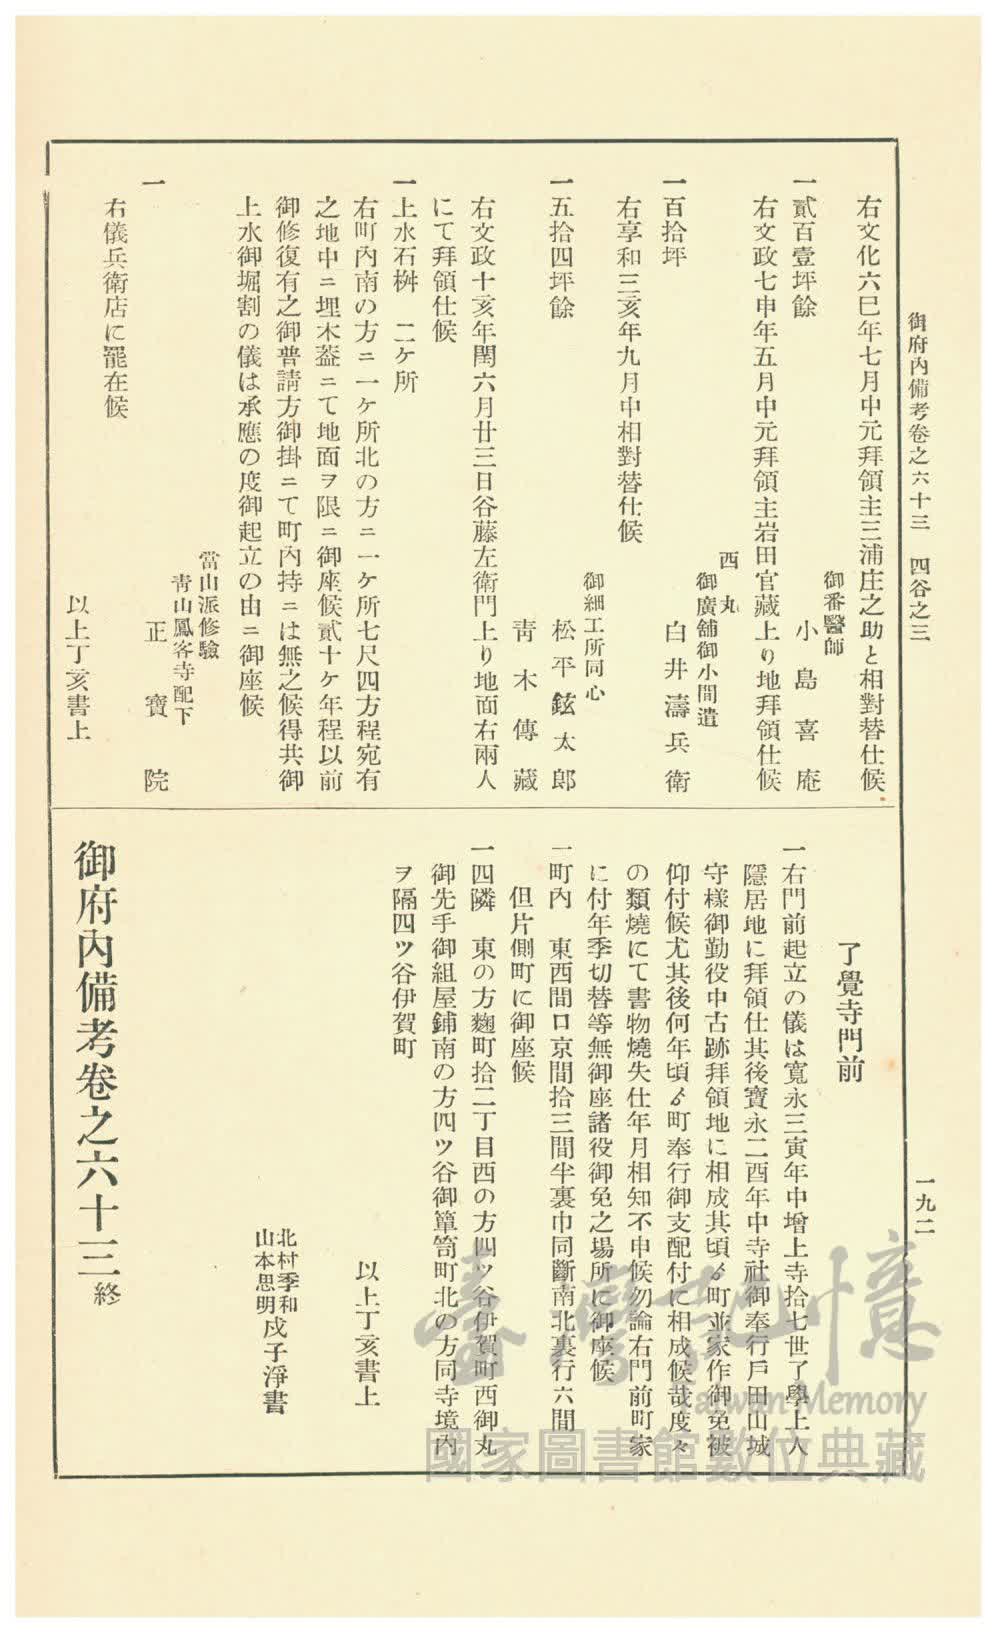 御府內備考卷之六十三　四谷之三
一九二
右文化六巳年七月中元拜領主三浦庄之助と相對替仕候
御番醫師
一貳百壹坪餘　小島喜庵
右文政七申年五月中元拜領主岩田官藏上り地拜領仕候
西丸
御廣舖御小間遣
一百拾坪　白井濤兵衛
右享和三亥年九月中相對替仕候
御細工所同心
一五拾四坪餘　松平鉉太郎
靑木傳藏
右文政十亥年閏六月廿三日谷藤左衛門上り地面右兩人
にて拜領仕候
一上水石桝　二ケ所
右町內南の方ニ一ケ所北の方ニ一ケ所七尺四方程宛有
之地中ニ埋木蓋ニて地面ヲ限ニ御座候貳十ケ年程以前
御修復有之御普請方御掛ニて町內持ニは無之候得共御
上水御堀割の儀は承應の度御起立の由ニ御座候
當山派修驗
靑山鳳客寺配下
一　正寶院
右儀兵衛店に罷在候
以上丁亥書上
了覺寺門前
一右門前起立の儀は寬永三寅年中增上寺拾七世了學上人
隱居地に拜領仕其後寶永二酉年中寺社御奉行戶田山城
守樣御勤役中古跡拜領地に相成其頃ゟ町並家作御免被
仰付候尤其後何年頃ゟ町奉行御支配付に相成候哉度々
の類燒にて書物燒失仕年月相知不申候勿論右門前町家
に付年季切替等無御座諸役御免之場所に御座候
一町內　東西間口京間拾三間半裏巾同斷南北裏行六間
但片側町に御座候
一四隣　東の方麴町拾二丁目西の方四ツ谷伊賀町西御丸
御先手御組屋鋪南の方四ツ谷御簞笥町北の方同寺境內
ヲ隔四ツ谷伊賀町
以上丁亥書上
北村季和
山本思明
戌子淨書
御府內備考卷之六十三終
臺灣記憶
Taiwan Memory
國家圖書館數位典藏